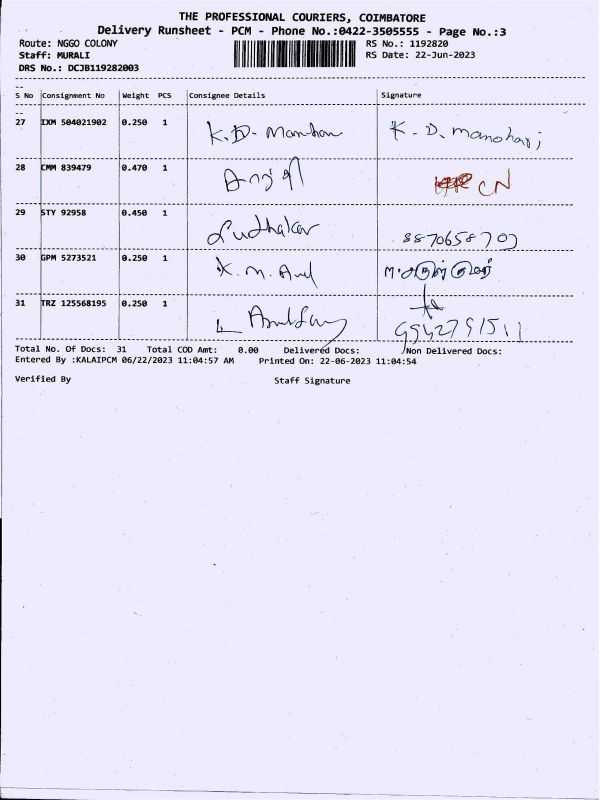 THE PROFESSIONAL COURIERS, COIMBATORE
Delivery Runsheet - PCM - Phone No.:0422-3505555 - Page No.:3
Route: NGGO COLONY RS No.: 1192820
Staff: MURALI RS Date: 22-Jun-2023
DRS No.: DCJB119282003
S No Consignment No Weight PCS Consignee Details Signature
27 IXM 504021902 0.250 1 K. D. K. D. Manohari
28 CMM 839479 0.470 1 CN
29 STY 92958 0.450 1 Sudhakar 8870658707
30 GPM 5273521 0.250 1 K. M. M. அருண் குமார்
31 TRZ 125568195 0.250 1 L 9942791511
Total No. Of Docs: 31 Total COD Amt: 0.00 Delivered Docs: Non Delivered Docs:
Entered By :KALAIPCM 06/22/2023 11:04:57 AM Printed On: 22-06-2023 11:04:54
Verified By Staff Signature